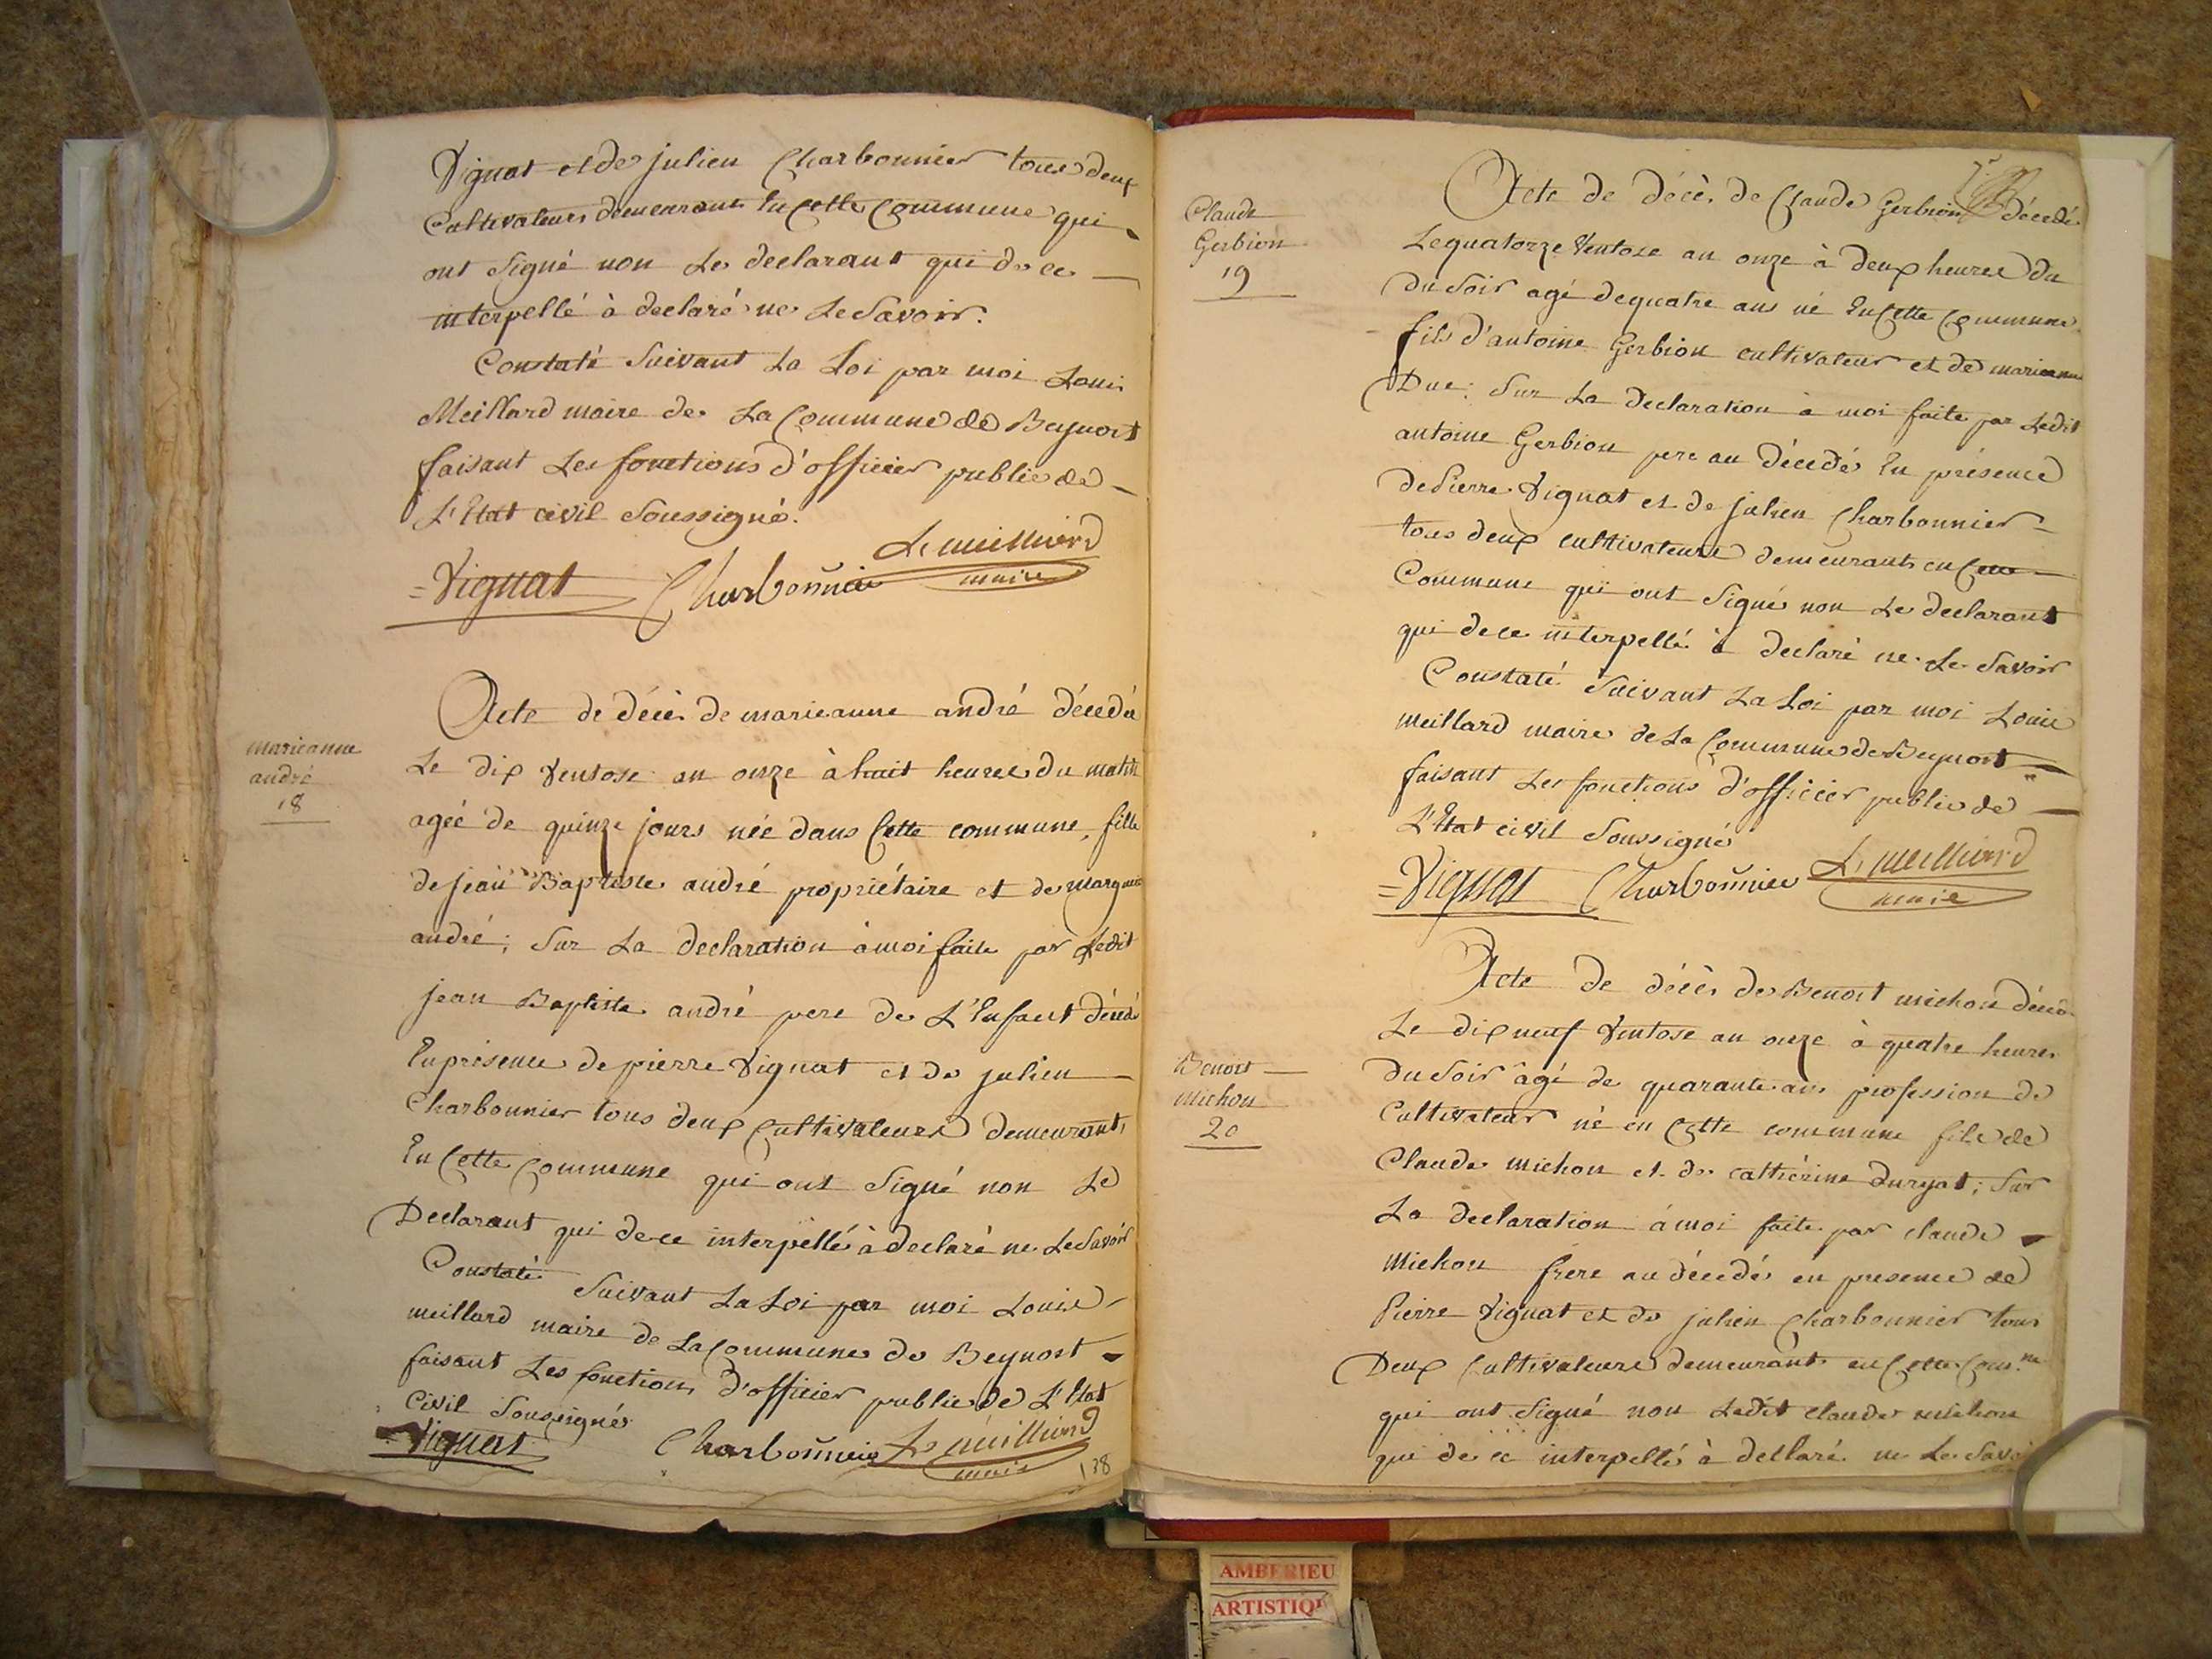 Vignat et de julien Charbonnier tous deux
Cultivateurs demeurant En Cette Commune qui
ont Signé non Le declarant qui de ce
interpellé à declaré ne Le Savoir.
Constaté Suivant La Loi par moi Louis
Meillard maire de La Commune de Beynost
faisant Les fonctions d'officier public de
L'Etat civil Soussigné.
Vignat Charbonnier L. meilliard
maire
marieanne
andré
18
Acte de décès de marieanne andré décedée
Le dix Ventose an onze à huit heures du matin
agée de quinze jours née dans Cette commune, fille
de jean Baptiste andré propriétaire et de Marguerite
andré; Sur La declaration à moi faite par Ledit
jean Baptiste andré pere de L'Enfant décédé
En présence de pierre Vignat et de julien
Charbonnier tous deux Cultivateurs demeurants
En Cette Commune qui ont Signé non Le
Declarant qui de ce interpellé à declaré ne Le Savoir
Constaté Suivant La Loi par moi Louis
meillard maire de La Commune de Beynost
faisant Les fonctions d'officier public de L'Etat
Civil Soussigné
Vignat Charbonnier L. meilliard
maire
138
Claude
Gerbion
19
Acte de décès de Claude Gerbion décedé
Le quatorze Ventose an onze à deux heures du
du Soir agé de quatre ans né En Cette Commune
fils d'antoine Gerbion cultivateur et de marieanne
Duc: Sur La Declaration à moi faite par Ledit
antoine Gerbion pere au décedé En présence
de Pierre Vignat et de julien Charbonnier
tous deux cultivateurs demeurants en Cette
Commune qui ont Signé non Le declarant
qui de ce interpellé à declaré ne Le Savoir
Constaté Suivant La Loi par moi Louis
meillard maire de La Commune de Beynost
faisant Les fonctions d'officier public de
L'Etat civil Soussigné
Vignat Charbonnier L. meilliard
maire
Benoit
Michon
20
Acte de décès de Benoit michon décédé
Le dix neuf Ventose an onze à quatre heures
du Soir âgé de quarante ans profession de
Cultivateur né en Cette commune fils de
Claude Michon et de cathérine duryat; Sur
La declaration à moi faite par claude
Michon frere au décedé en presence de
Pierre Vignat et de julien Charbonnier tous
Deux Cultivateurs demeurants en Cette Com.ne
qui ont Signé non Ledit claude michon
qui de ce interpellé à declaré ne Le Savoir
AMBERIEU
ARTISTIQU